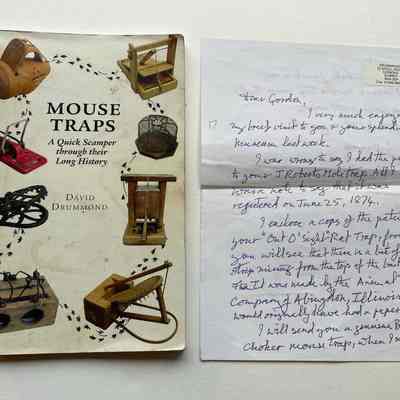 MOUSE
TRAPS
A Quick Scamper
through their
Long History
DAVID
DRUMMOND
Dear Gordon,
I very much enjoyed
my brief visit to you & your splendid
museum last week.
I was wrong to say I had the
to your J Roberts Mole Trap. All I
was a note to say that it was
registered on June 25, 1874.
I enclose a copy of the
your "Out O' Sight" Rat Trap, from
you will see that there is a bit of
strip missing from the top of the
was made by the Animal
Company of Abingdon, Illinois
would originally have had a paper
I will send you a genuine
Choker mouse trap, when I